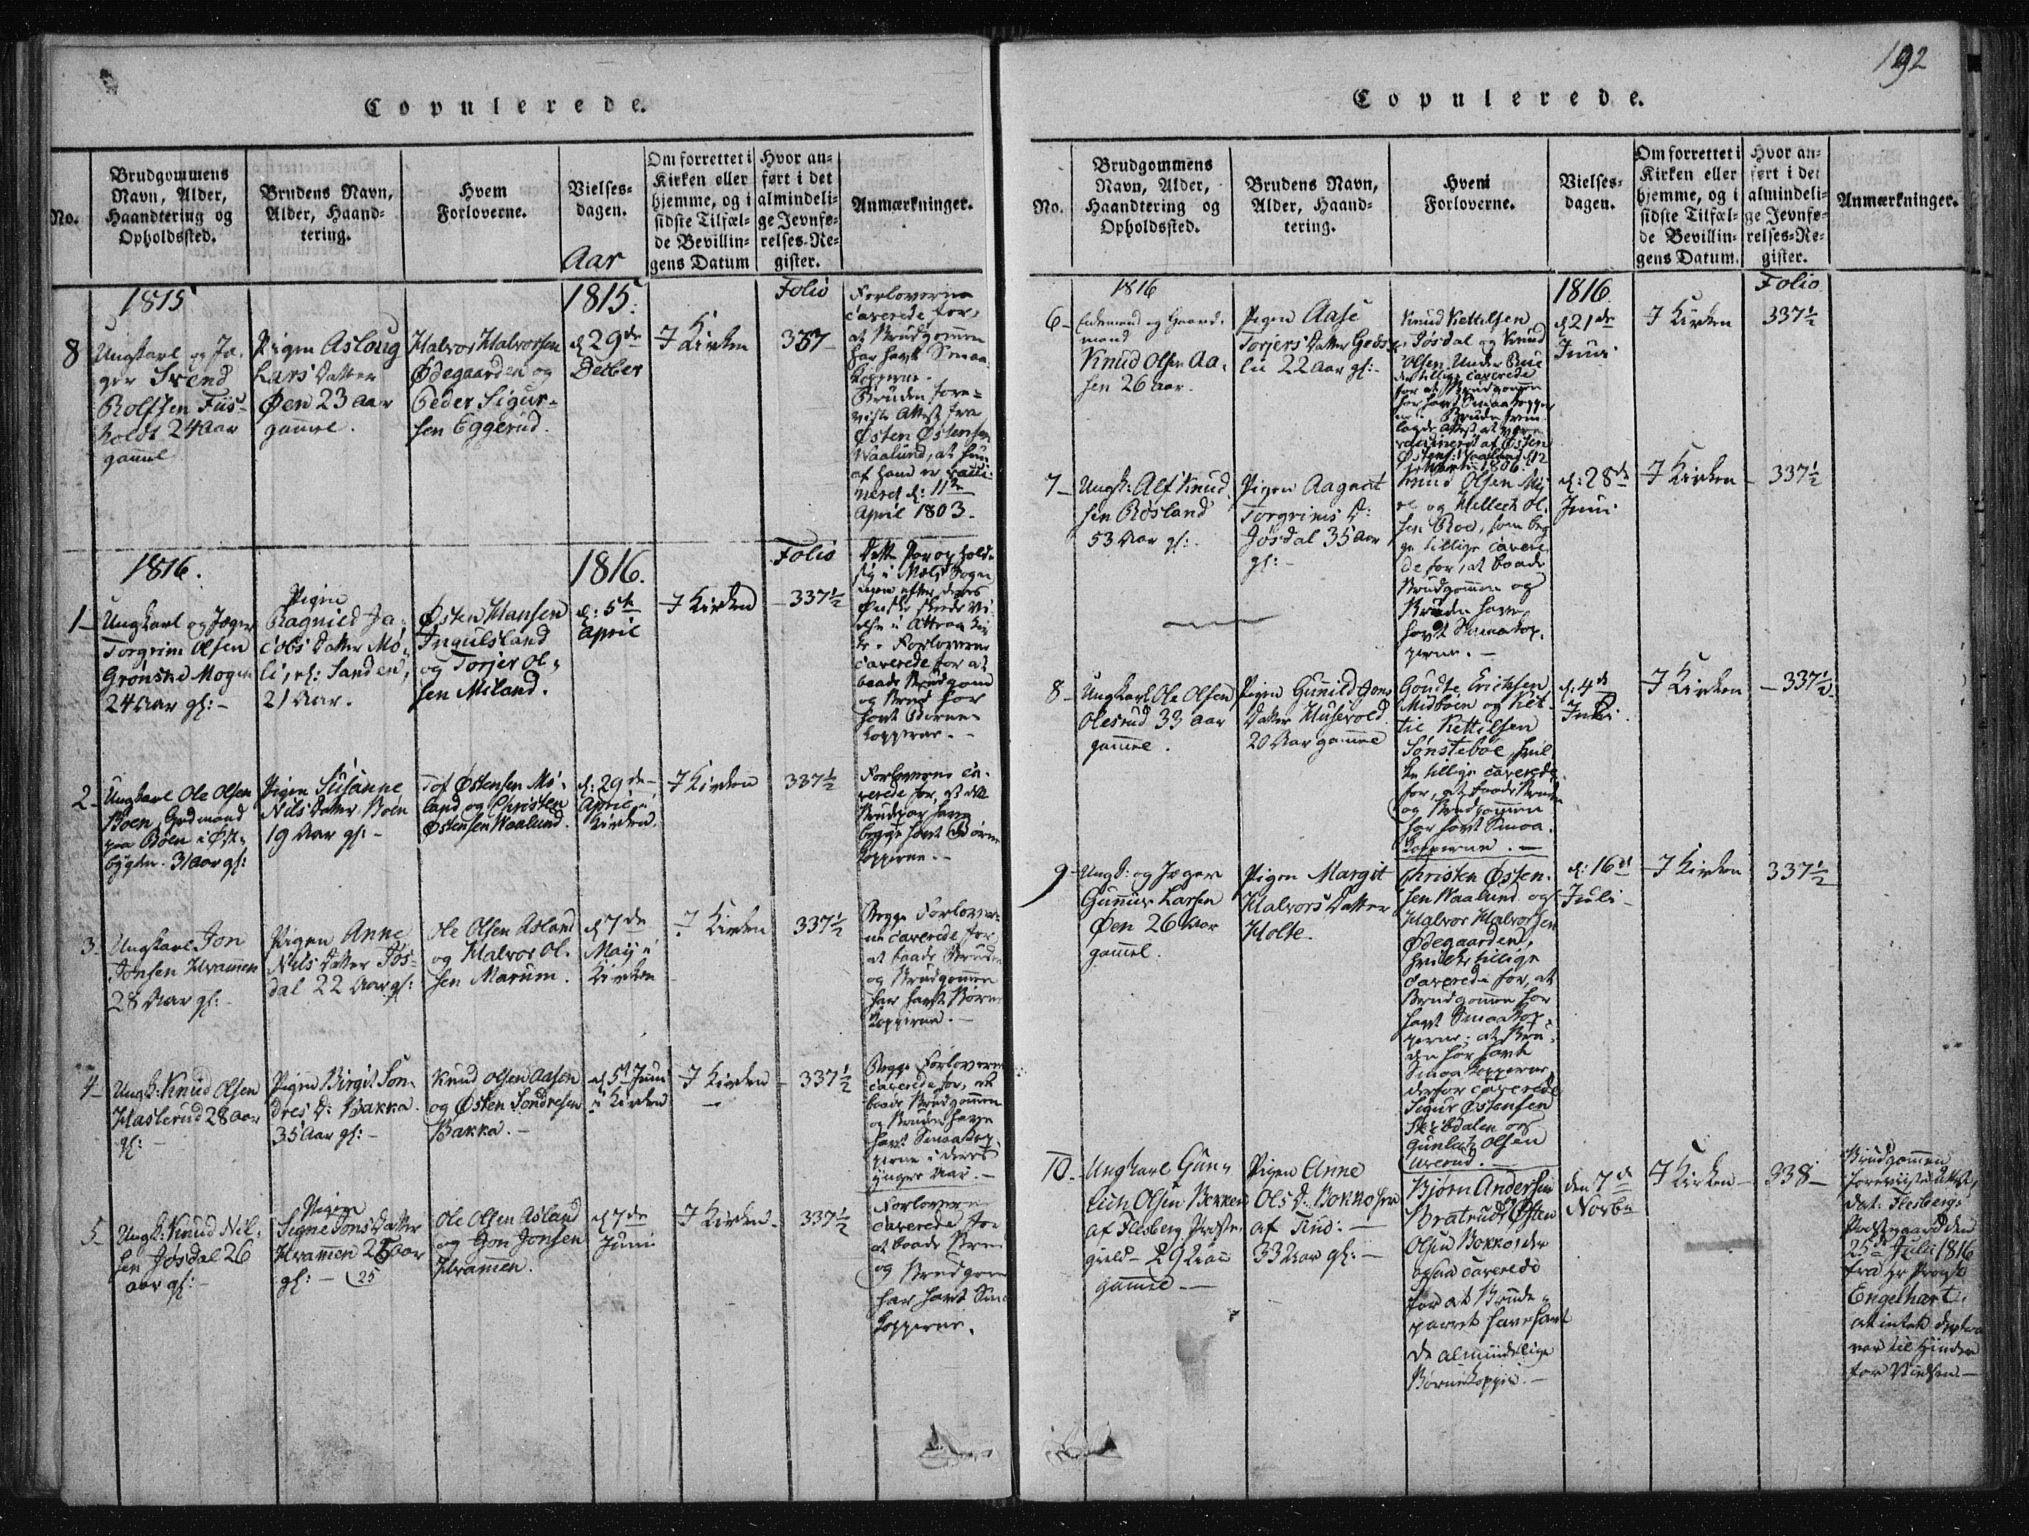 Copulerede.
No.
Brudgommens
Navn, Alder,
Haandtering og
Opholdssted.
Brudens Navn,
Alder, Haand-
tering.
Hvem
Forloverne.
Vielses-
dagen.
Om forrettet i
Kirken eller
hjemme, og i
sidste Tilfæl-
de Bevillin-
gens Datum
Hvor an-
ført i det
almindeli-
ge Jevnfø-
relses-Re-
gister.
Anmærkninger.
Aar
1815
1815.
Folio
8
Ungkarl og Jæ-
ger Svend
Rolfsen Fiis-
holdt 24 Aar
gammel
Pigen Asloug
Lars Datter
Øen 23 Aar
gammel.
Halvor Halvorsen
Ødegaarden og
Peder Sigur-
sen Eggerud.
d. 29de
Decber
I Kirken
357
Forloverne
caverede for,
at Brudgommen
har havt Smaa
kopperne.
Bruden fore-
viiste Attest fra
Østen Østensen
Waalund, at hun
af ham er vacci-
neret d: 11te
April 1803.
1816.
1816.
Folio
1
Ungkarl og Jæger
Torgrim Olsen
Grønske Mogen
24 Aar gl: -
Pigen
Ragnild Ja-
cobs Datter Mø-
li, Sanden,
21 Aar.
Østen Hansen
Ingulsland
og Torjer Ol-
sen Miland.
d: 5te
April
I Kirken
337½
Dette Par opholdt
sig i Mæls Sogn
men efter deres
Ønske skede Vi-
elsen i Attraa Kir-
ke. Forloverne
caverede for at
baade Brudgom
og Brud har
havt Børne-
kopperne. -
2
Ungkarl Ole Olsen
Boen, Gaardmand
paa Böen i Øst-
bygden. 31 aar gl:
Pigen Susanne
Nils Datter Boen
19 Aar gl: -
Tof Østensen Mø-
land og Christen
Østensen Waalund.
d: 29de
April i
Kirken.
I Kirken
337½
Forloverne ca-
verede for, at dette
Brudepar have
begge havt Børne
kopperne. -
3
Ungkarl Jon
Jonsen Kvammen
28 Aar gl: -
Pigen Anne
Nils Datter Jøs-
dal 22 Aar gl:
Ole Olsen Asland
og Halvor Ol-
sen Marum.
d 7de
Maij i
Kirken
I Kirken
337½
Begge Forlover-
ne caverede for
at baade Bruden
og Brudgommen
har havt Børne
kopperne. -
4
Ungk: Knud Olsen
Haslerud 28 Aar
gl: -
Pigen Birgit Son-
dres D: Bakka.
35 Aar gl: -
Knud Olsen Aasen
og Østen Sondresen
Bakka. -
d 5t Juni
i Kirken
I Kirken
337½
Begge Forloverne
caverede for, at
baade Brudgommen
og Bruden have
havt Smaakop-
perne i deres
yngre Aar. -
5
Ungk: Knud Nil-
sen Jøsdal 26
aar gl: -
Pigen
Signe Jons Datter
Kvamen 25 aar
gl: - (25
Ole Olsen Asland
og Jon Jonsen
Kvamen.
d 7de
Juni
I Kirken.
337½
Forloverne
caverede for
at baade Brud
og Brudgom
har havt Smaa
kopperne.
192
Copulerede.
No.
Brudgommens
Navn, Alder,
Haandtering og
Opholdssted.
Brudens Navn,
Alder, Haand-
tering.
Hvem
Forloverne.
Vielses-
dagen.
Om forrettet i
Kirken eller
hjemme, og i
sidste Tilfæl-
de Bevillin-
gens Datum.
Hvor an-
ført i det
almindeli-
ge Jevnfø-
relses-Re-
gister.
Anmærkninger.
1816
1816.
Folio
6
Enkemand og Gaard-
mand
Knud Olsen Aa-
sen 26 Aar.
Pigen Aase
Torjers Datter
lie 22 Aar gl: -
Knud Kettilsen
Jøsdal og Knud
Olsen
der tillige caverede
for at Brudgommen
har havt Smaakopper
ne. Bruden frem
lagde Attest at være
vaccineret af Østen
Østens: Waalund d 12
1806.
d 21de
Juni
I Kirken
337½
7
Ungk: Alf Knud
sen Røsland
53 Aar gl: -
Pigen Aagaat
Torgrims D:
Jøsdal 35 Aar
gl: -
Knud Olsen Mi-
re og Kellech Ol-
sen Roe, som beg
ge tillige cavere
de for, at baade
Brudgommen og
Bruden have
havt Smaakop-
perne. -
d: 28de
Juni
I Kirken
337½
8
Ungkarl Ole Olsen
Olesrud 33 Aar
gammel.
Pigen Gunild Jons
Datter Husevold
20 Aar gammel
Goudte Erichsen
Midboen og Ket-
til Kettilsen
Sønsteboe, hvil
ke tillige caverede
for, at baade Bruden
og Brudgommen
har havt Smaa-
kopperne. -
d: 4de
Juli.
I Kirken
337½
9
Ungk: og Jæger
Gunnr Larsen
Øen 26 Aar
gammel.
Pigen Margit
Halvors Datter
Holte.
Christen Østen-
sen Waalund og
Halvor Halvorsen
Ødegaarden,
hvilke tillige
caverede for, at
Brudgommen har
havt Smaakop-
perne; at Bru-
den har havt
Smaa Kopperne
derfor caverede
Sigur Østensen
Skibdalen og
Gunlech Olsen
Urerud. -
d: 16de
Juli -
I Kirken
337½
10
Ungkarl Gun-
lech Olsen Bekken
af Flesberg Præste-
gield - 29 Aar
gammel -
Pigen Anne
Ols D:
af Tind: -
33 Aar gl: -
Bjørn Andersen
Bratrud, Østen
Olsen der
ogsaa caverede
for at Brude-
parret have havt
de almindelige
Børnekopper. -
den 7de
Novbr
I Kirken
338
Brudgommen
foreviiste Attest,
dat: Flesbergs
Præstegaard den
25de Julii 1816
fra Hr Provst
Engelhart,
at intet
var til Hinder
for Vielsen -